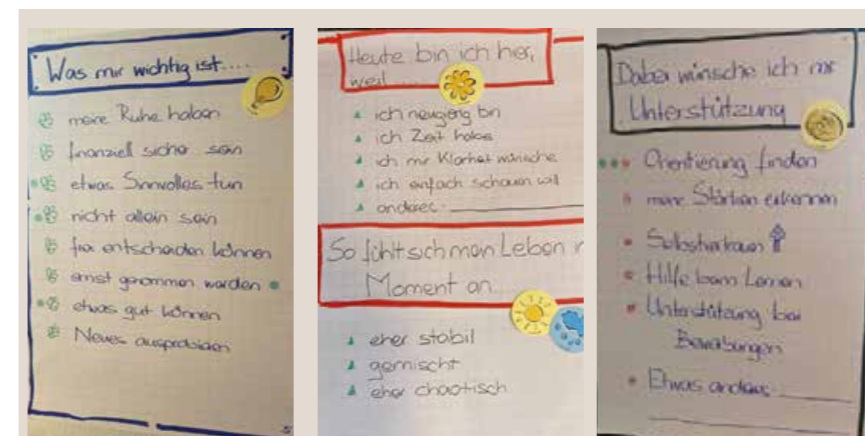 Was mir wichtig ist....
meine Ruhe haben
finanziell sicher sein
etwas Sinnvolles tun
nicht allein sein
frei entscheiden können
ernst genommen werden
etwas gut können
Neues ausprobieren
Heute bin ich hier,
weil
ich neugierig bin
ich Zeit habe
ich mir Klarheit wünsche
ich einfach schauen will
anderes: ___________
So fühlt sich mein Leben
Moment an
eher stabil
gemischt
eher chaotisch
Dabei wünsche ich mir
Unterstützung
Orientierung finden
meine Stärken erkennen
Selbstvertrauen
Hilfe beim Lernen
Unterstützung bei
Bewerbungen
Etwas anderes ______